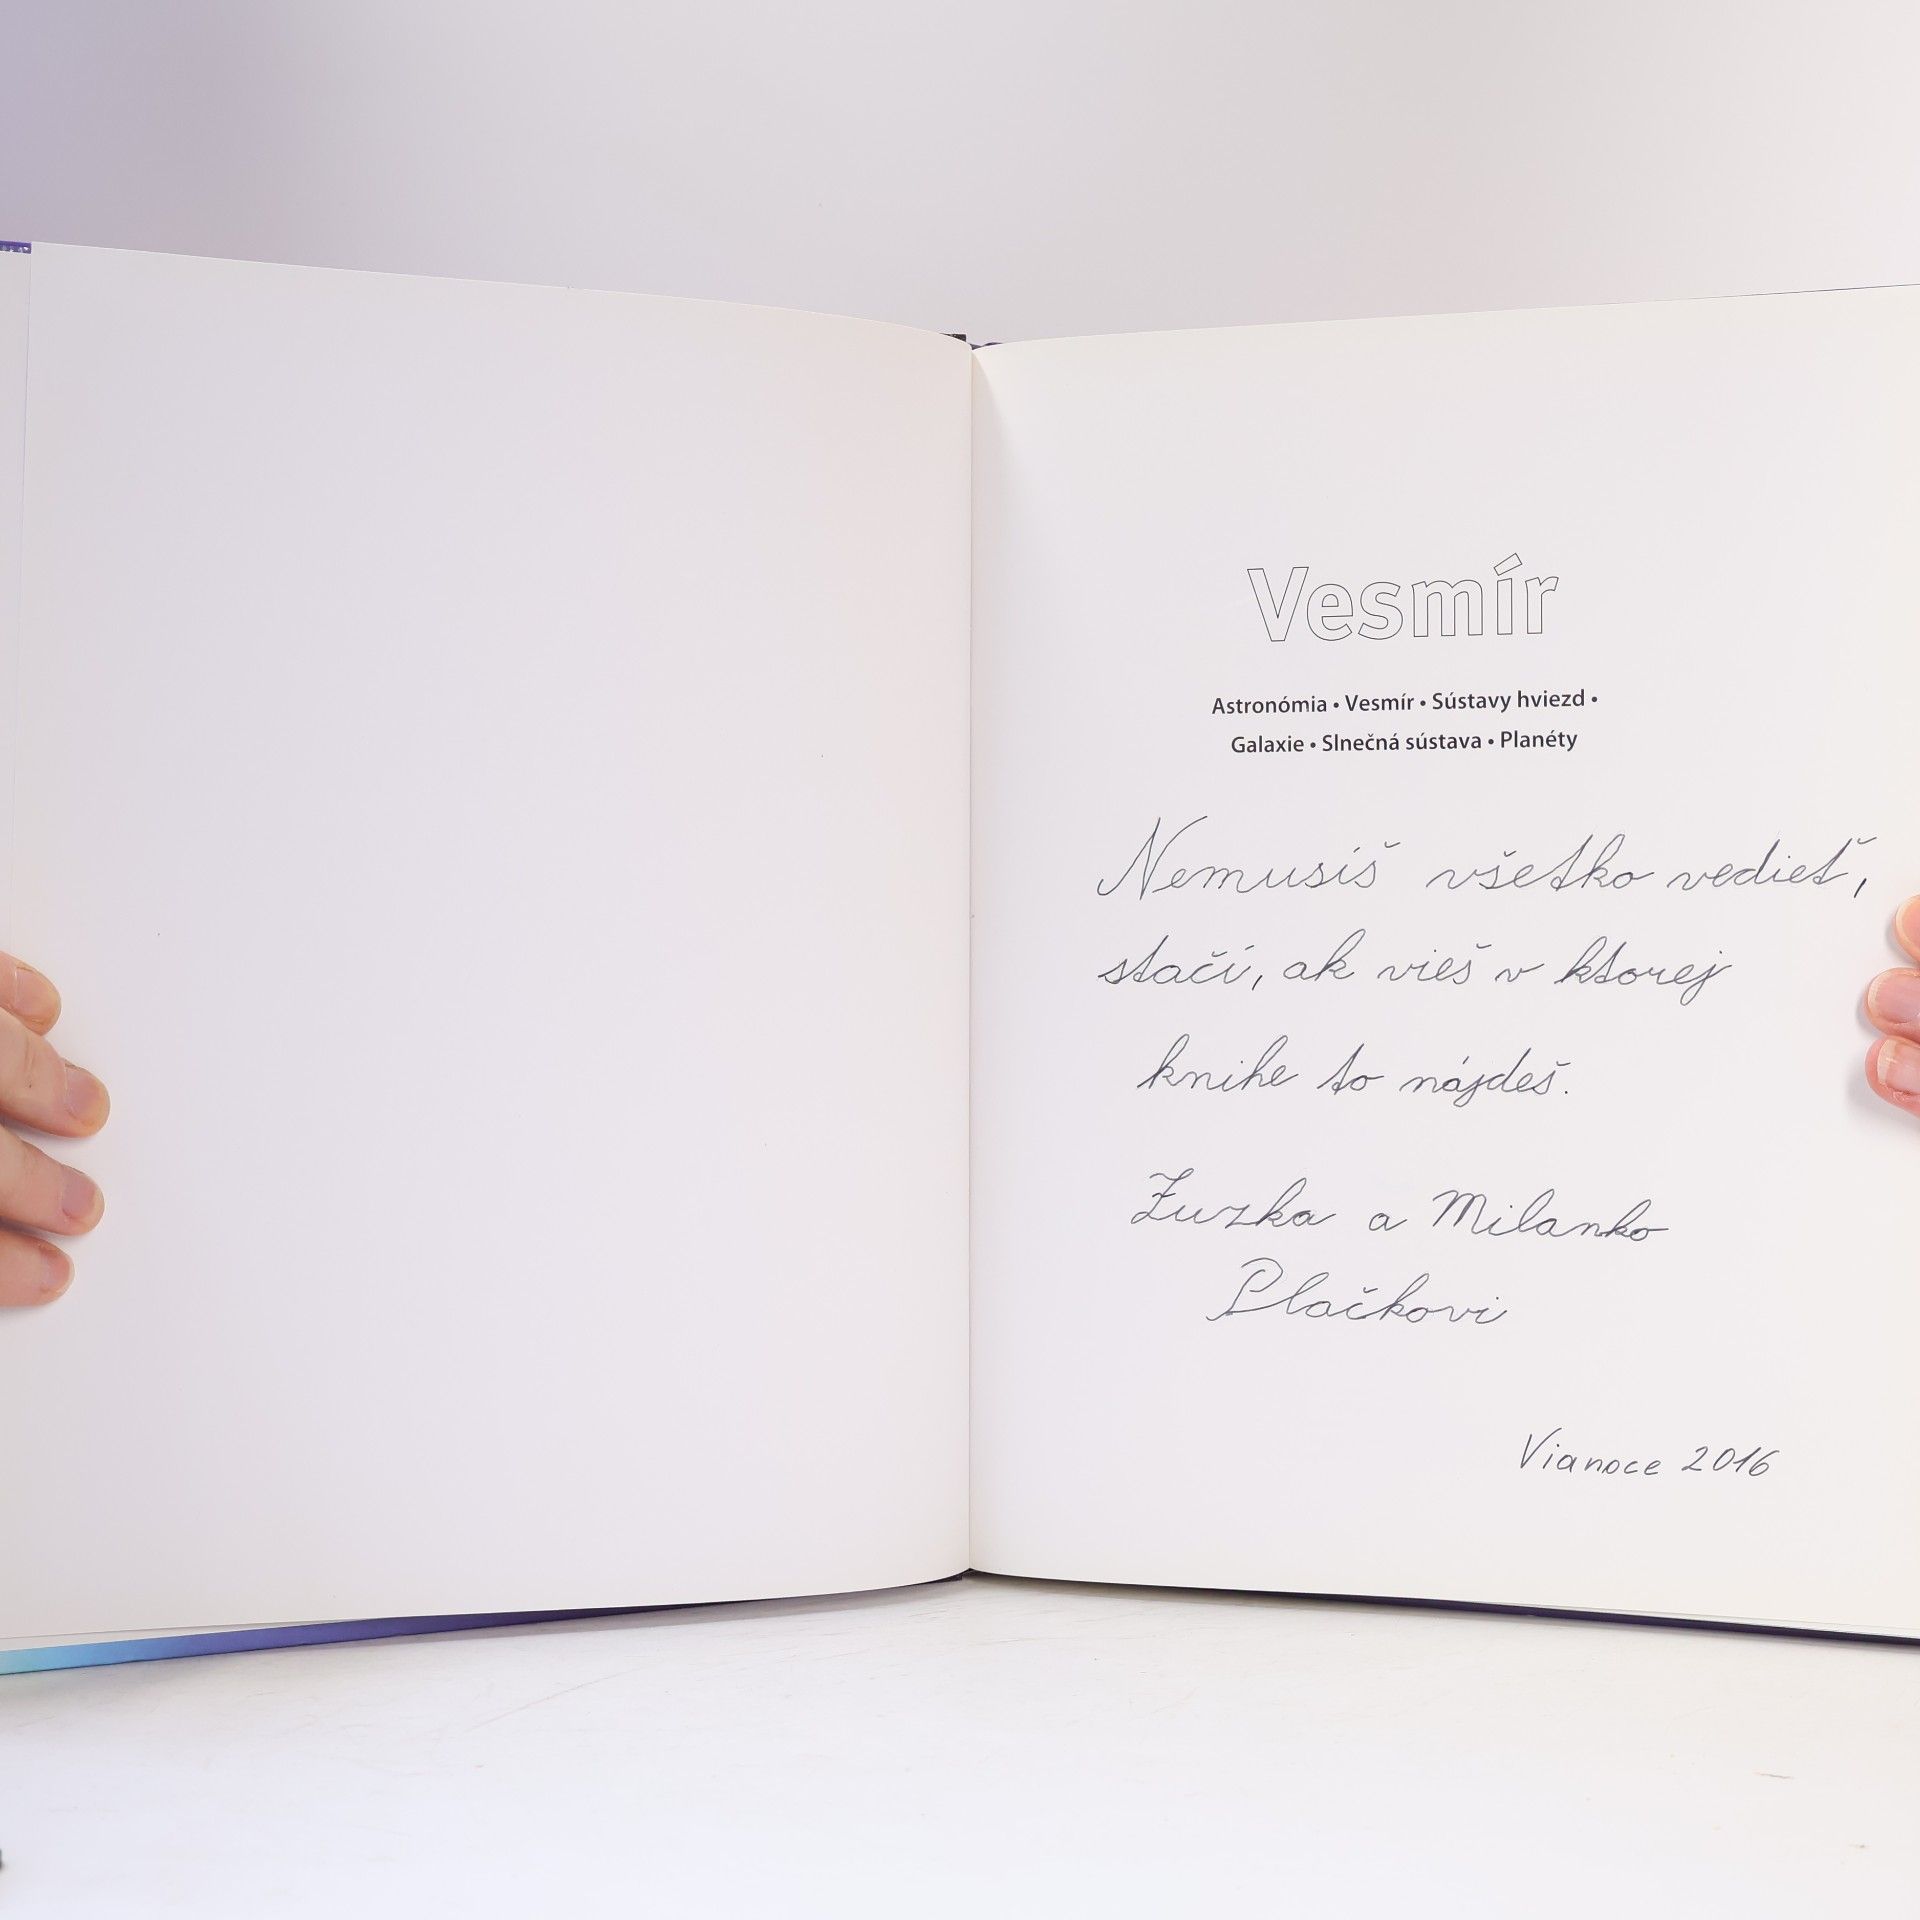 Vesmír
Astronómia • Vesmír • Sústavy hviezd •
Galaxie • Slnečná sústava • Planéty
Nemusíš všetko vedieť,
stačí, ak vieš v ktorej
knihe to nájdeš.
Zuzka a Milanko
Plačkovi
Vianoce 2016